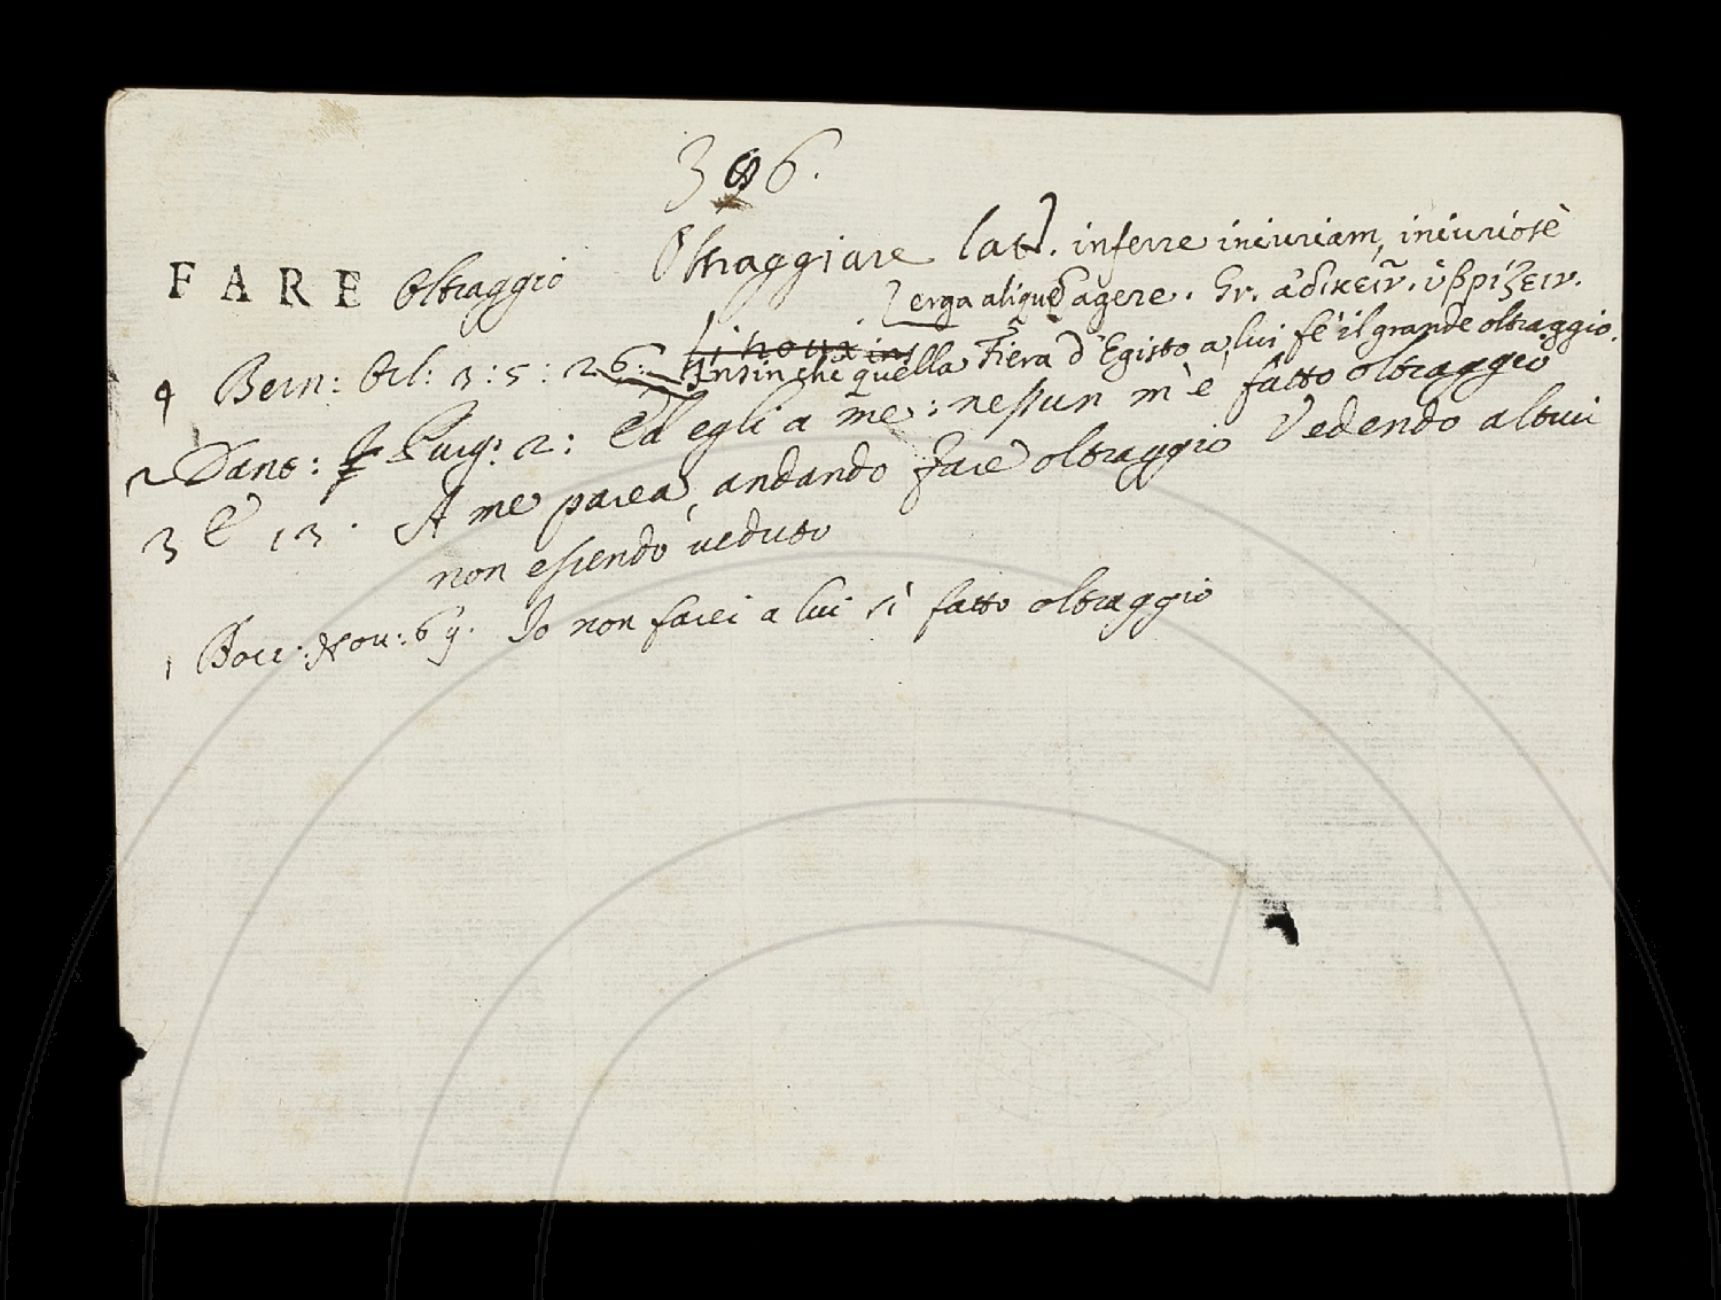 396.
FARE Oltraggio Oltraggiare lat. inferre iniuriam, iniuriosè
erga aliquē agere. Gr. ἀδικεῖν. ὑβρίζειν.
4 Bern: Orl: 3:5:26: Insin che quella Fiera d'Egisto a lui fe' il grande oltraggio.
2 Dant: Purg: 2: Ed egli a me: nessun m'è fatto oltraggio
3 E 13. A me parea, andando fare oltraggio Vedendo altrui
non essendo veduto
1 Bocc. Nov: 69. Io non farei a lui sì fatto oltraggio